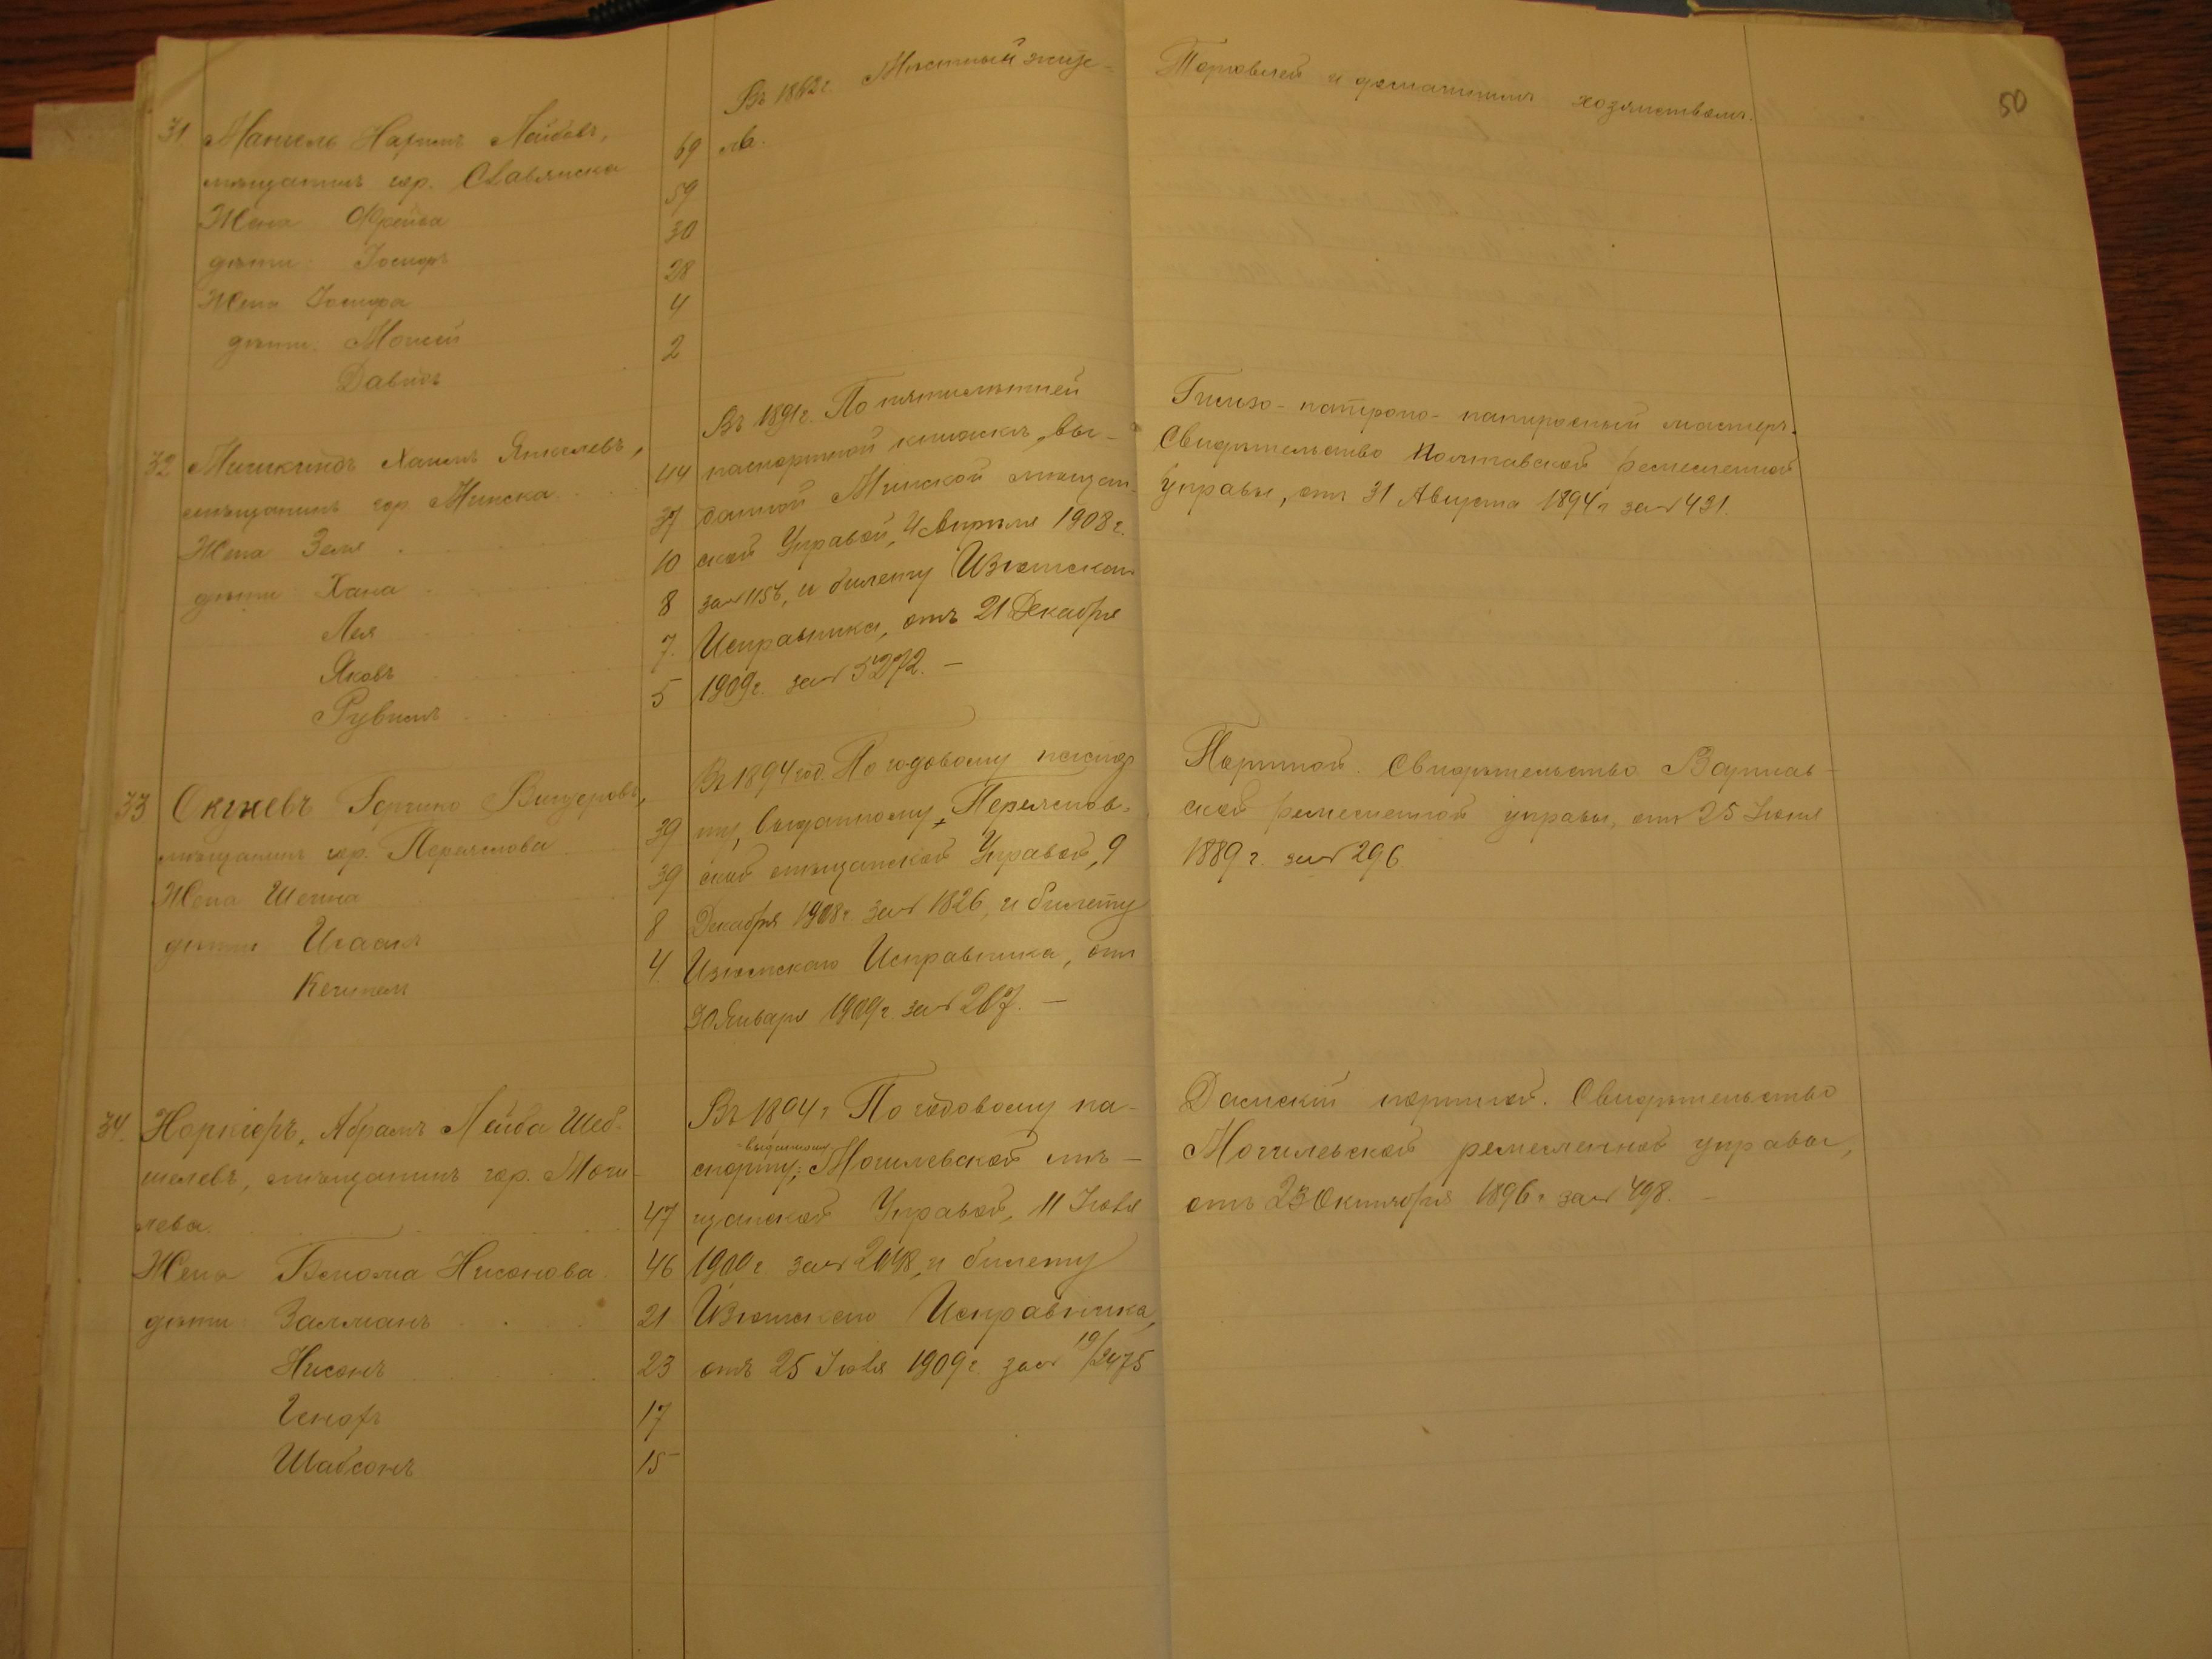 50
Въ 1862 г. Местный жите-
ль.
Торговлей и домашнимъ хозяйствомъ.
31 Манель Нахимъ Лейбовъ,
мѣщанинъ гор. Славянска 69
Жена Фрейда 59
дѣти: Іосифъ 30
Жена Іосифа 28
дѣти. Моисей 4
Давидъ 2
32 Мишкиндъ Хаимъ Янкелевъ,
мѣщанинъ гор. Минска 44
Жена Зеля 37
дѣти Хана 10
Лея 8
Яковъ 7.
Рувимъ 5
Въ 1891 г. По пятилѣтней
паспортной книжкѣ, вы-
данной Минской мѣщан-
ской Управой, 4 Апрѣля 1908 г.
за № 1156, и билету Изюмскаго
Исправника, отъ 21 Декабря
1909 г. за № 5272. —
Гильзо-патроно-папиросный мастеръ.
Свидѣтельство Полтавской ремесленной
Управы, отъ 31 Августа 1894 г за № 431.
33 Окуневъ
мѣщанинъ гор. Переяслова 39
Жена Шейна 39
дѣти Исаакъ 8
4
Въ 1894 год. По годовому паспор
ту, выданному Переяслов-
ской мѣщанской Управой, 9
Декабря 1908 г. за № 1826, и билету
Изюмскаго Исправника, отъ
30 Января 1909 г. за № 207. —
Портной. Свидѣтельство Варшав-
ской ремесленной управы, отъ 25 Іюня
1889 г. за № 296
34. Абрамъ Лейба Шеб-
шелевъ, мѣщанинъ гор. Моги-
лева. 47
Жена Нисонова. 46
дѣти: Залманъ 21
Нисонъ 23
17
Шабсонъ 15
Въ 1894 г По годовому па-
выданному
спорту, Могилевской мѣ-
щанской Управой, 11 Іюля
1909 г. за № 2048, и билету
Изюмскаго Исправника,
отъ 25 Іюля 1909 г. за № 19/3475
Дамскій портной. Свидѣтельство
Могилевской ремесленной управы,
отъ 23 Октября 1896 г за № 498. —